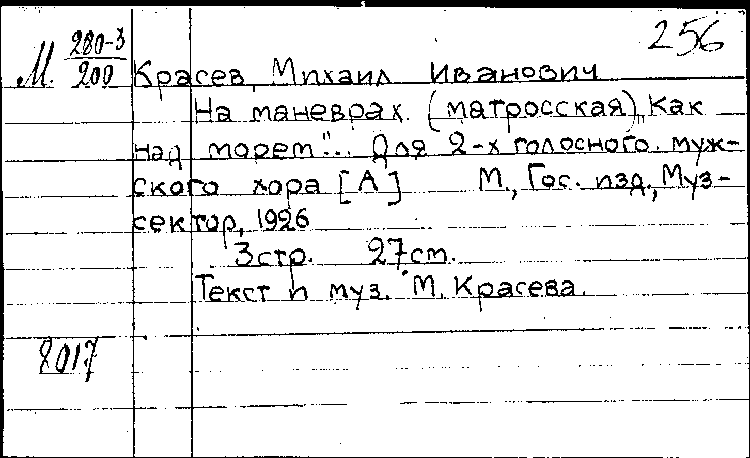 256
М. 280-3/200
Красев, Михаил Иванович
На маневрах. (матросская) „Как
над морем"... Для 2-х голосного муж-
ского хора [А] М., Гос. изд., Муз-
сектор, 1926
3 стр. 27 см.
Текст и муз. М. Красева.
8017